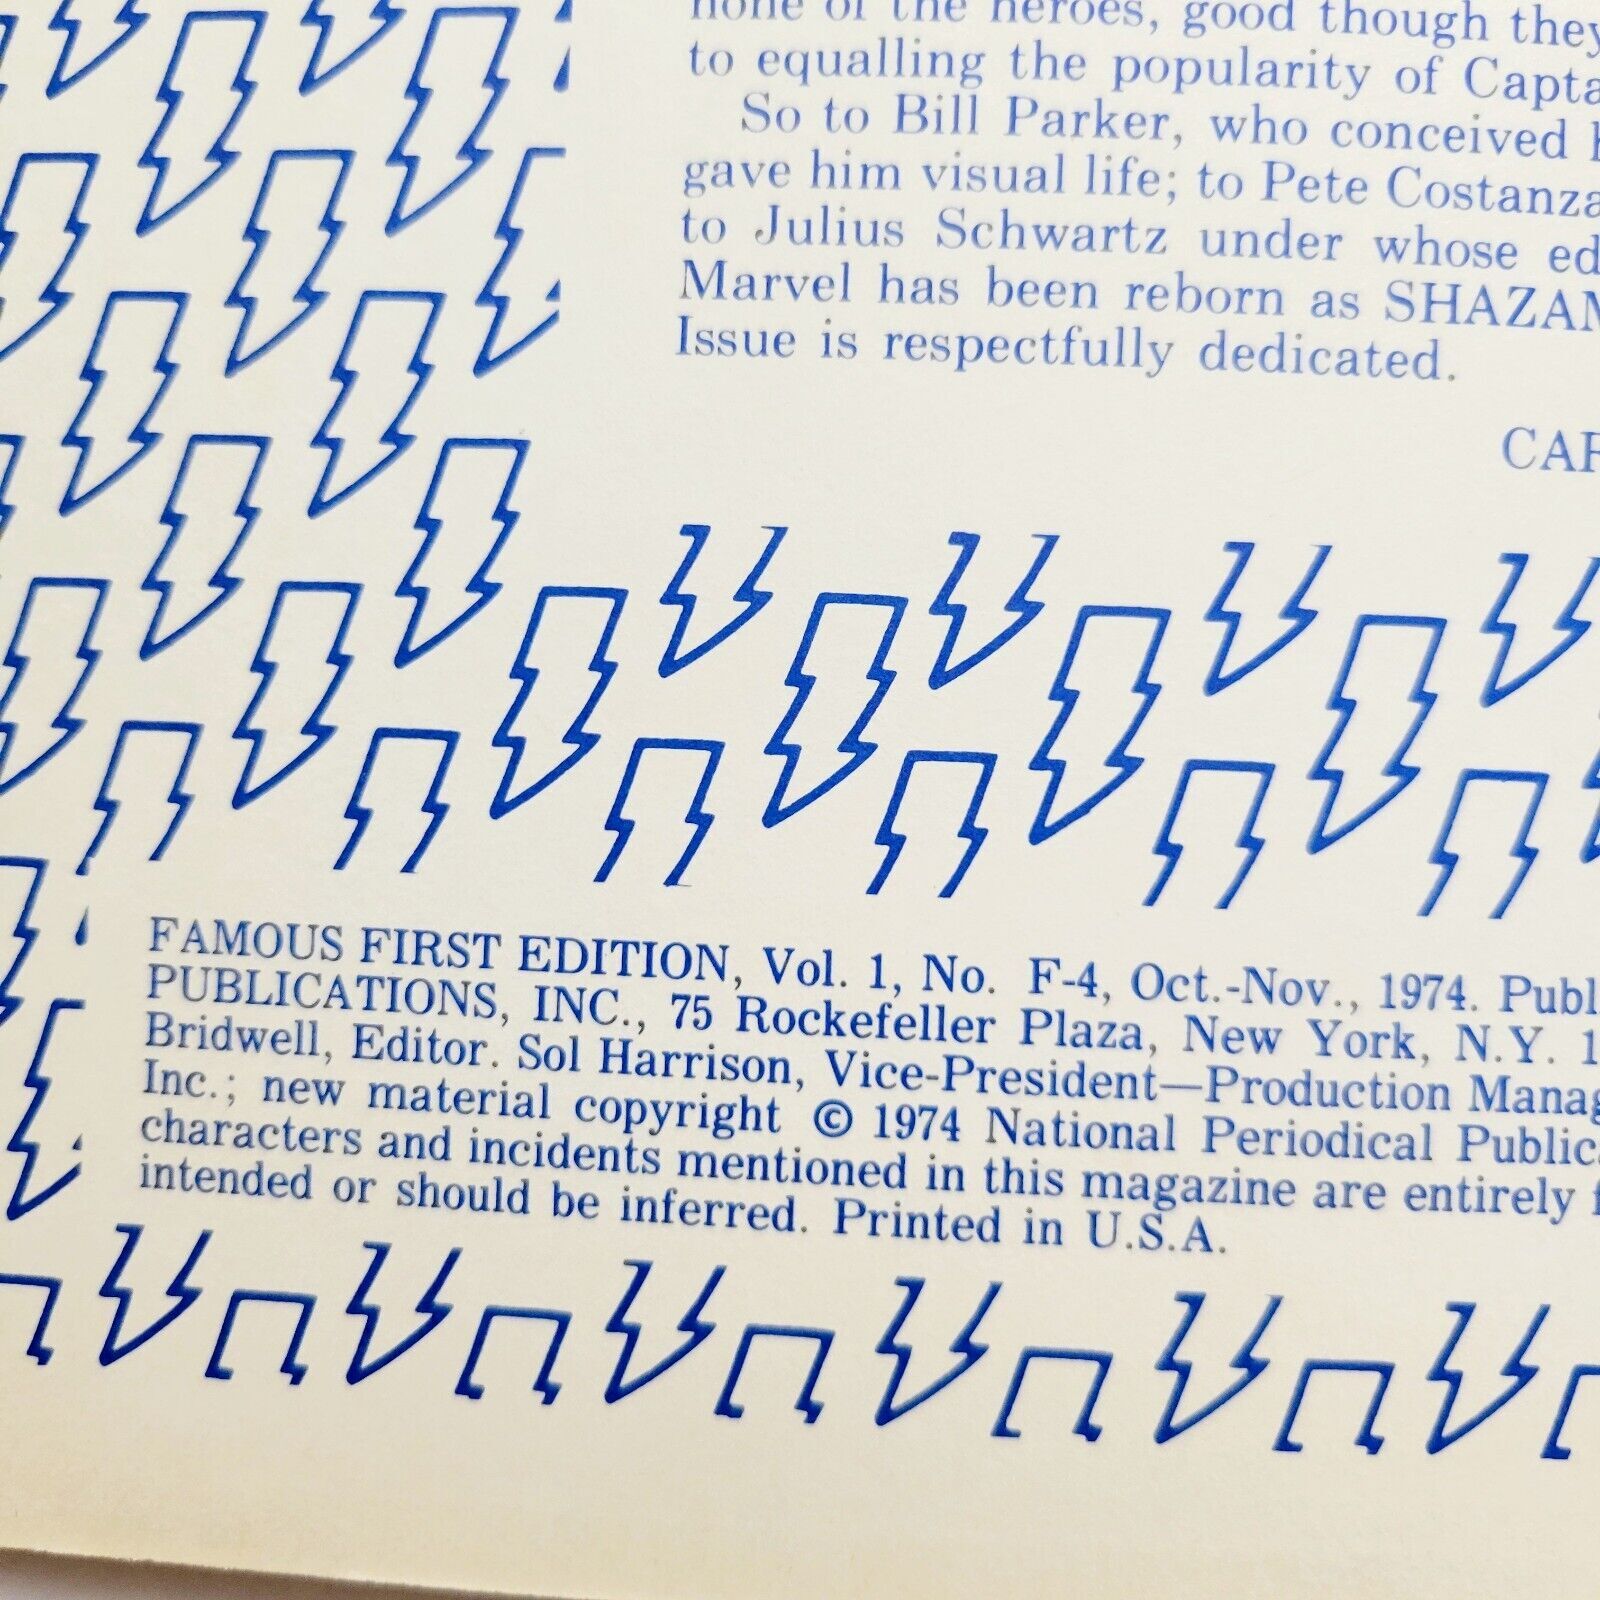 none of the heroes, good though they
to equalling the popularity of Capta
So to Bill Parker, who conceived
gave him visual life; to Pete Costanza
to Julius Schwartz under whose ed
Marvel has been reborn as SHAZAM
Issue is respectfully dedicated.
CAR
FAMOUS FIRST EDITION, Vol. 1, No. F-4, Oct.-Nov., 1974. Publ
PUBLICATIONS, INC., 75 Rockefeller Plaza, New York, N.Y. 1
Bridwell, Editor. Sol Harrison, Vice-President—Production Manag
Inc.; new material copyright © 1974 National Periodical Public
characters and incidents mentioned in this magazine are entirely f
intended or should be inferred. Printed in U.S.A.